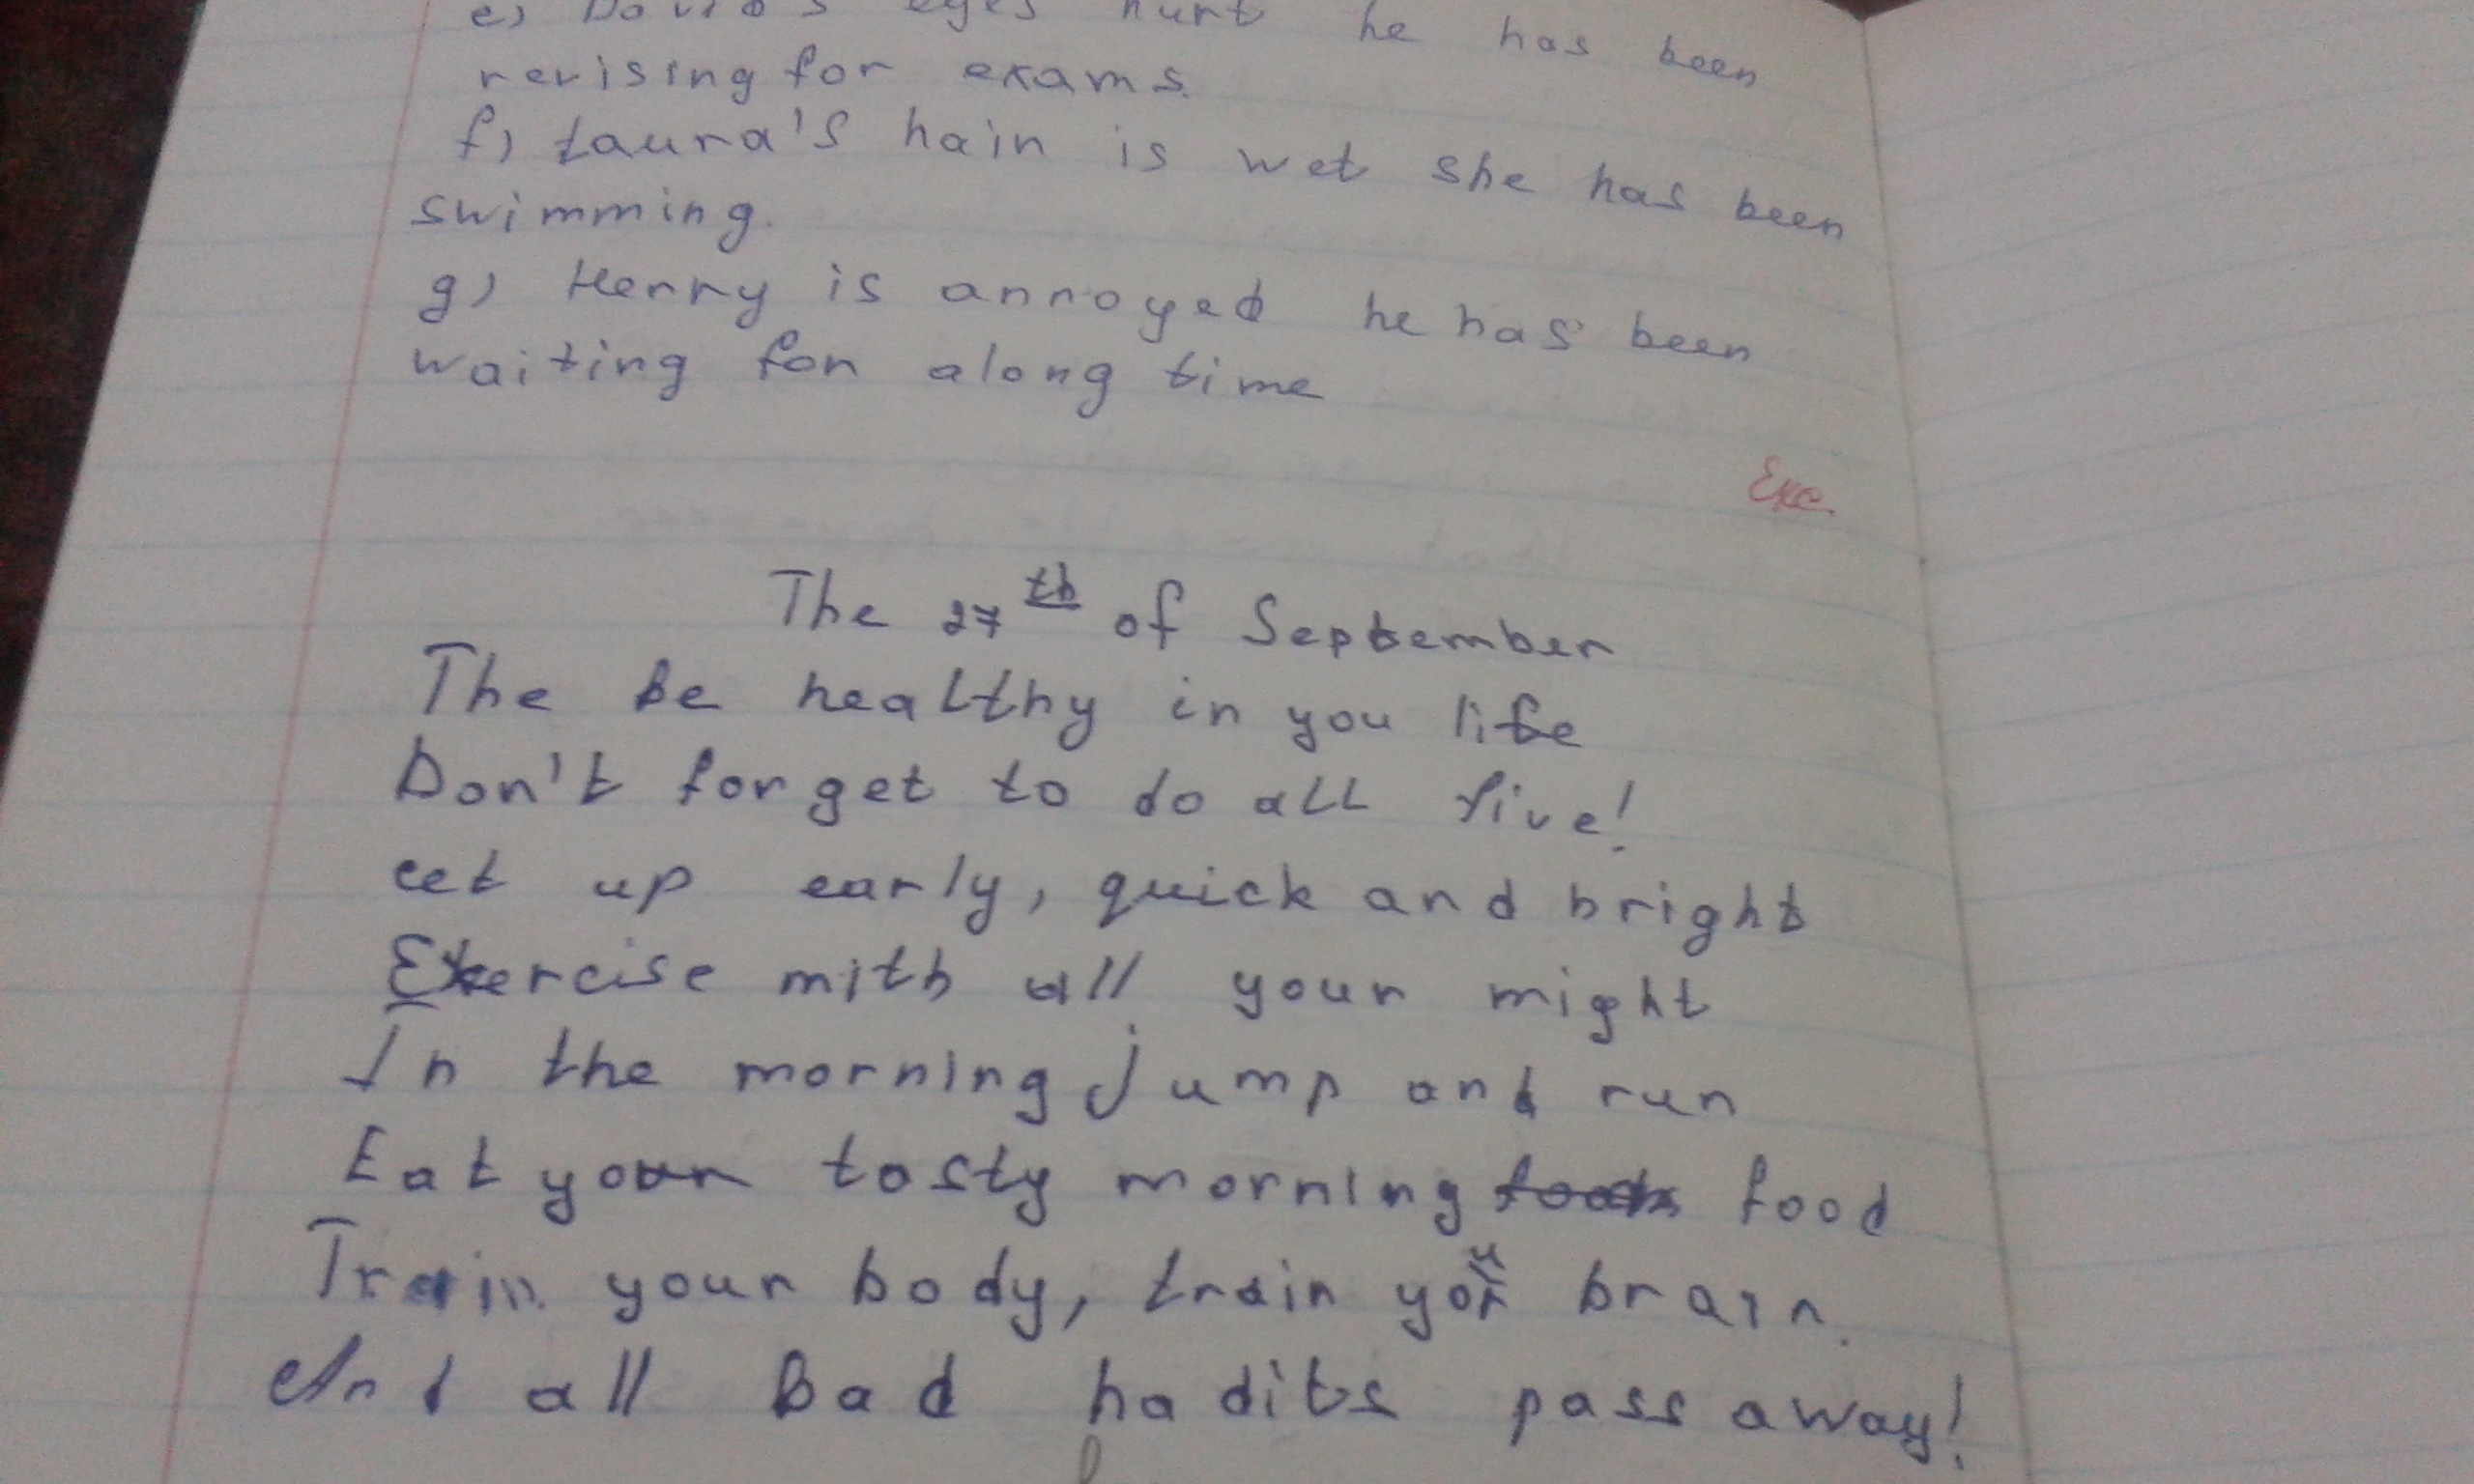 e) David's eyes hurt he has been
revising for exams.
f) Laura's hair is wet she has been
swimming.
g) Henry is annoyed he has been
waiting for along time
Exc.
The 27th of September
The be healthy in you life
Don't forget to do all five!
Get up early, quick and bright
Exercise with all your might
In the morning jump and run
Eat your tasty morning food
Train your body, train your brain.
And all bad hadits pass away!